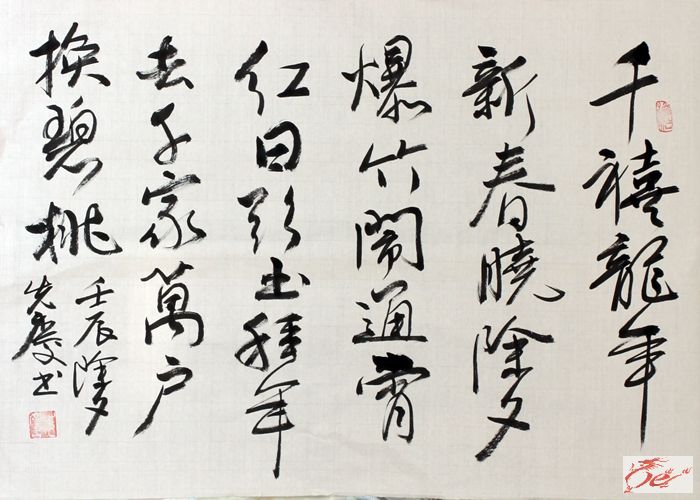 千禧龍年
新春曉除夕
爆竹鬧通宵
紅日影出拜年
去千家萬戶
換碧桃
壬辰除夕
先慶書